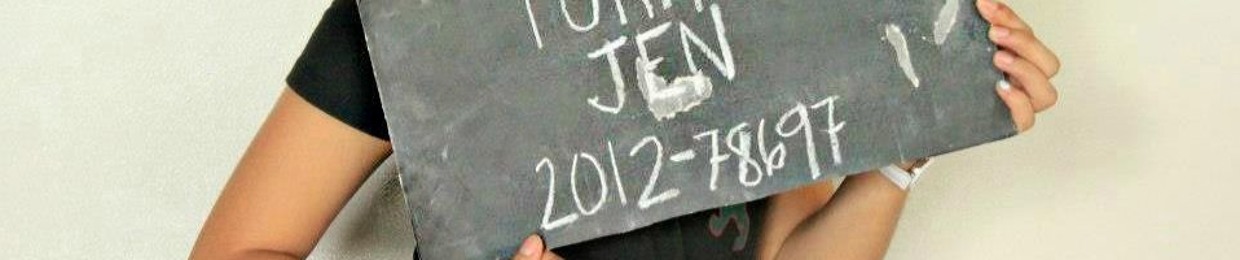 JEN
2012-78697